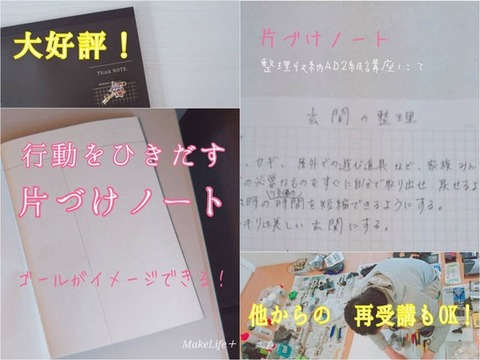 大好評！
Think NOTE.
行動をひきだす
片づけノート
ゴールがイメージできる！
MakeLife+
片づけノート
整理収納AD2級講座にて
玄関の整理
カギ、屋外での遊び道具など、家族みん
の必要なものをすぐに自分で取り出せ、戻せるよ
時の時間を短縮できるようにする。
キリは美しい玄関にする。
他からの 再受講もOK！